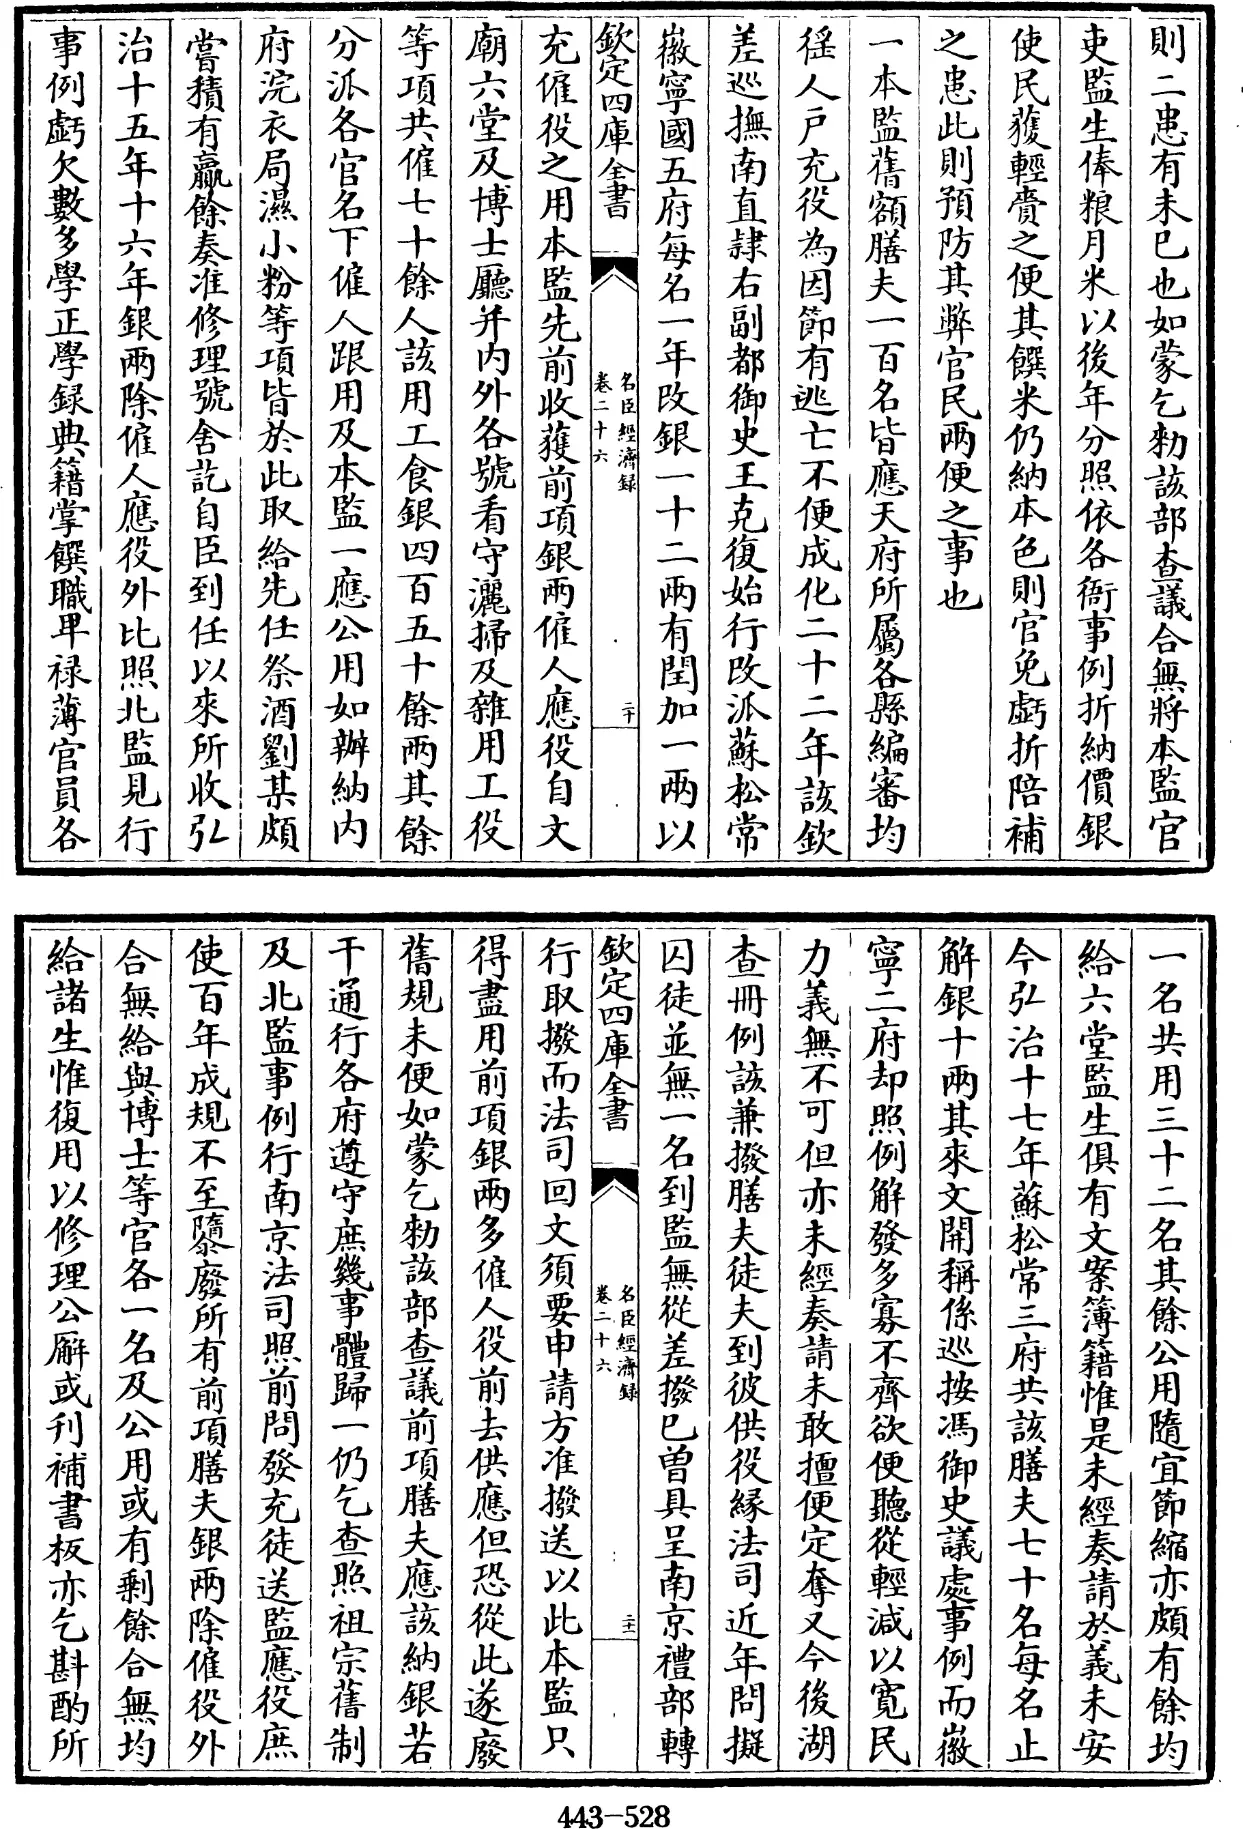 則二患有未已也如蒙乞勅該部查議合無將本監官
吏監生俸粮月米以後年分照依各衙事例折納價銀
使民獲輕賫之便其饌米仍納本色則官免虧折陪補
之患此則預防其弊官民兩便之事也
一本監舊額膳夫一百名皆應天府所屬各縣編審均
徭人戶充役為因節有逃亡不便成化二十二年該欽
差巡撫南直隸右副都御史王克復始行改派蘇松常
徽寧國五府每名一年改銀一十二兩有閏加一兩以
欽定四庫全書
名臣經濟録
卷二十六
二十
充僱役之用本監先前收獲前項銀兩僱人應役自文
廟六堂及博士廳并内外各號看守灑掃及雜用工役
等項共僱七十餘人該用工食銀四百五十餘兩其餘
分派各官名下僱人跟用及本監一應公用如辦納内
府浣衣局濕小粉等項皆於此取給先任祭酒劉某頗
嘗積有贏餘奏准修理號舍訖自臣到任以來所收弘
治十五年十六年銀兩除僱人應役外比照北監見行
事例虧欠數多學正學録典籍掌饌職卑禄薄官員各
一名共用三十二名其餘公用隨宜節縮亦頗有餘均
給六堂監生俱有文案簿籍惟是未經奏請於義未安
今弘治十七年蘇松常三府共該膳夫七十名每名止
解銀十兩其來文開稱係巡按馮御史議處事例而徽
寧二府却照例解發多寡不齊欲便聽從輕減以寛民
力義無不可但亦未經奏請未敢擅便定奪又今後湖
查冊例該兼撥膳夫徒夫到彼供役縁法司近年問擬
囚徒並無一名到監無從差撥已曽具呈南京禮部轉
欽定四庫全書
名臣經濟録
卷二十六
二十一
行取撥而法司回文須要申請方准撥送以此本監只
得盡用前項銀兩多僱人役前去供應但恐從此遂廢
舊規未便如蒙乞勅該部查議前項膳夫應該納銀若
干通行各府遵守庶幾事體歸一仍乞查照祖宗舊制
及北監事例行南京法司照前問發充徒送監應役庶
使百年成規不至隳廢所有前項膳夫銀兩除僱役外
合無給與博士等官各一名及公用或有剩餘合無均
給諸生惟復用以修理公廨或刋補書板亦乞斟酌所
443-528